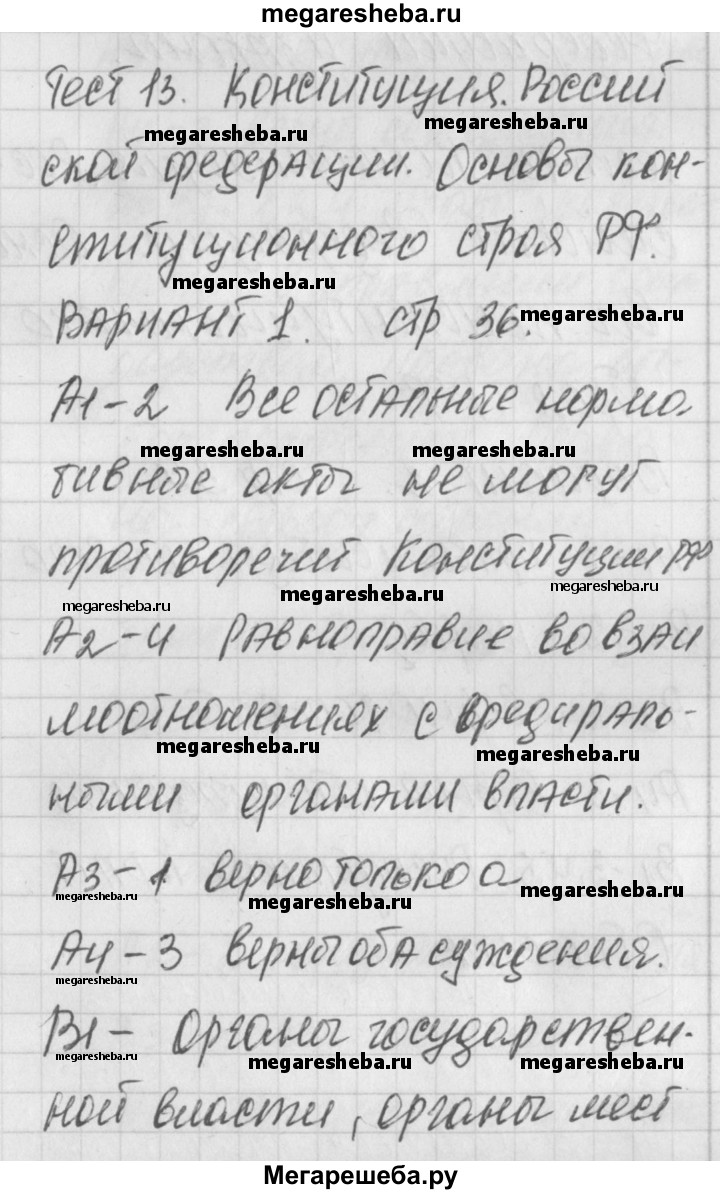 megaresheba.ru
Тест 13. Конституция. Россий
megaresheba.ru megaresheba.ru
ской федерации. Основы кон-
ституционного строя РФ.
megaresheba.ru
ВАРИАНТ 1. стр 36.
megaresheba.ru
А1-2 Все остальные норма.
megaresheba.ru megaresheba.ru
тивные акты не могут
противоречит Конституции РФ
megaresheba.ru megaresheba.ru megaresheba.ru
А2-4 Равноправие во взаи
моотношениях с вредираль-
megaresheba.ru megaresheba.ru
ными органами власти.
А3-1 верно только а
megaresheba.ru megaresheba.ru megaresheba.ru
А4-3 верны оба суждения.
megaresheba.ru
В1- Органы государствен-
megaresheba.ru megaresheba.ru megaresheba.ru
ной власти, органы мест
Мегарешеба.ру